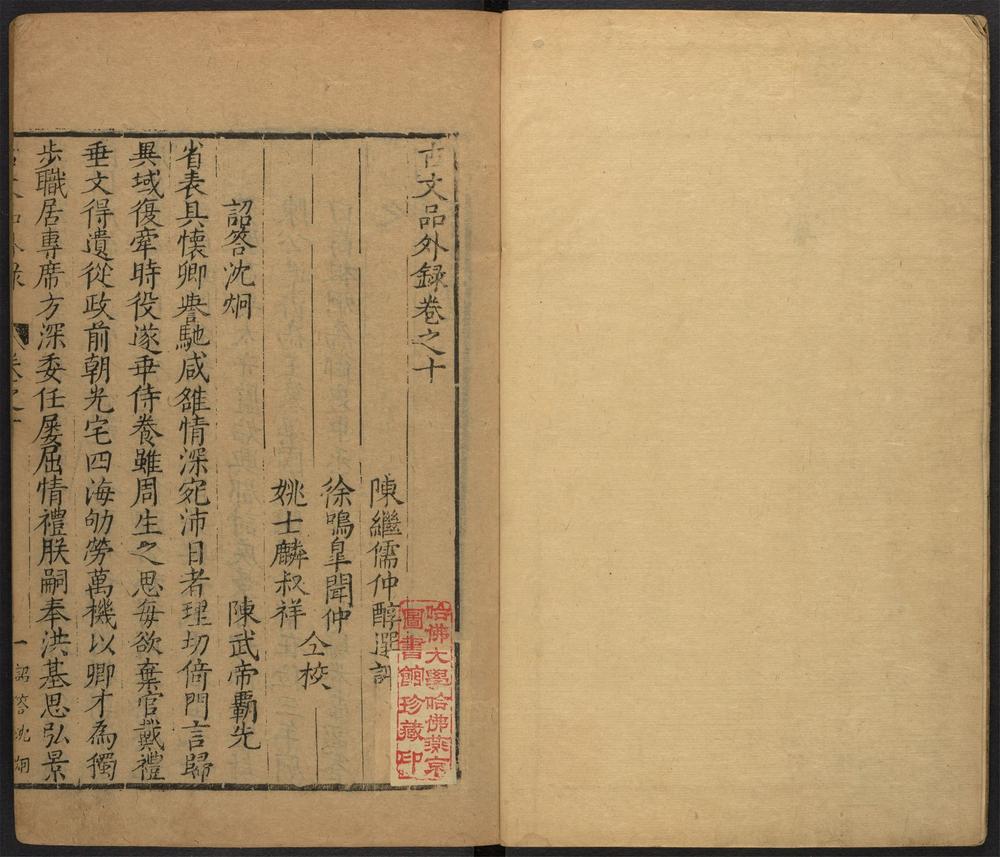 古文品外録卷之十
陳繼儒仲醇選評
徐鳴臯聞仲
姚士麟叔祥
仝校
詔答沈炯
陳武帝霸先
省表具懷卿譽馳咸雒情深宛沛日者理切倚門言歸
異域復牽時役遂乖侍養雖周生之思每欲棄官戴禮
垂文得遺從政前朝光宅四海劬勞萬機以卿才為獨
步職居專席方深委任屢屈情禮朕嗣奉洪基思弘景
卷之十
一 詔答沈炯
哈佛大學哈佛燕京
圖書館珍藏印